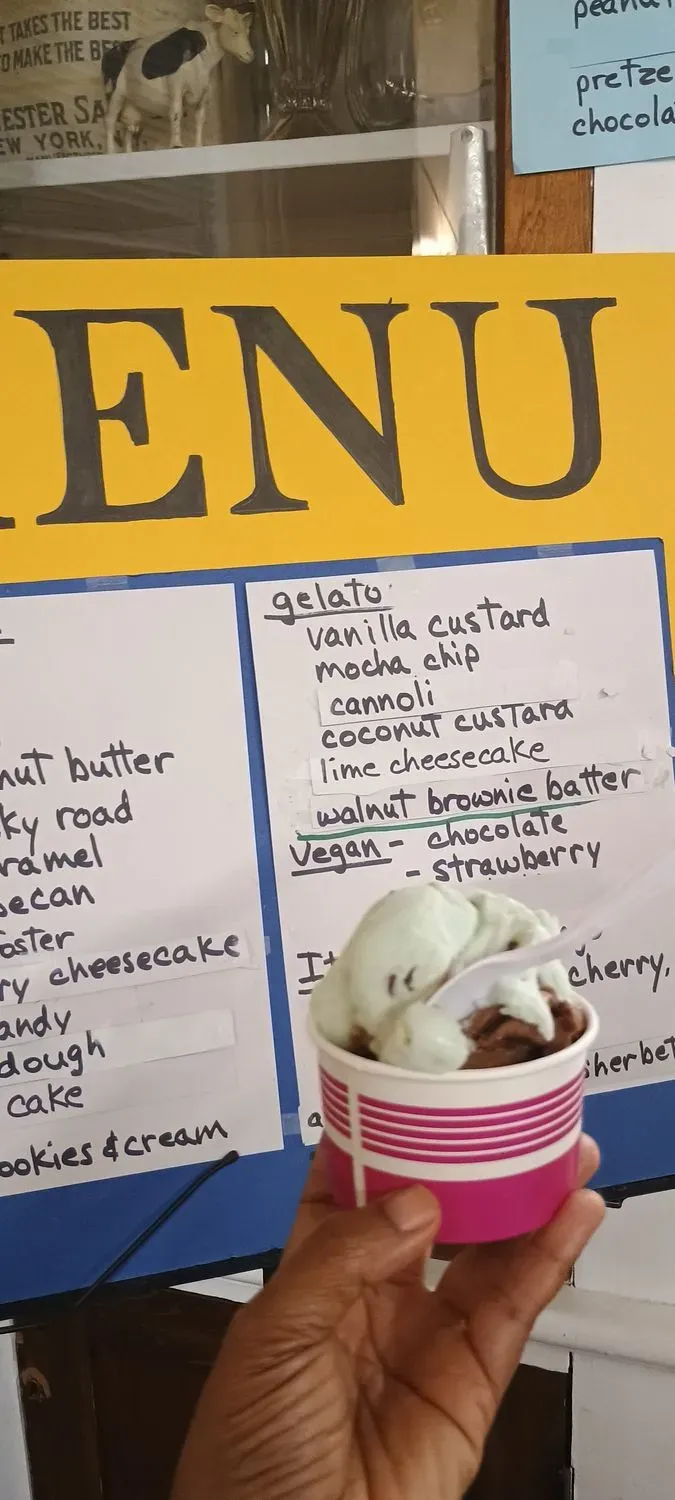 T TAKES THE BEST
O MAKE THE BE
ESTER SA
EW YORK,
peanut
pretze
chocola
ENU
nut butter
ky road
ramel
pecan
oster
ry cheesecake
andy
dough
cake
ookies & cream
gelato
vanilla custard
mocha chip
cannoli
coconut custard
lime cheesecake
walnut brownie batter
Vegan - chocolate
- strawberry
It
cherry,
sherbet
a